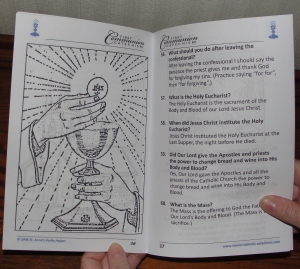 FIRST
Communion
CATECHISM
FIRST
Communion
CATECHISM
56. What should you do after leaving the
confessional?
After leaving the confessional I should say the
penance the priest gives me and thank God
for forgiving my sins. (Practice saying "for for",
then "for forgiving").
57. What is the Holy Eucharist?
The Holy Eucharist is the sacrament of the
Body and Blood of our Lord Jesus Christ.
58. When did Jesus Christ institute the Holy
Eucharist?
Jesus Christ instituted the Holy Eucharist at the
Last Supper, the night before He died.
59. Did Our Lord give the Apostles and priests
the power to change bread and wine into His
Body and Blood?
Yes, Our Lord gave the Apostles and all the
priests of the Catholic Church the power to
change bread and wine into His Body and
Blood.
60. What is the Mass?
The Mass is the offering to God the
Our Lord's Body and Blood. (The Mass is
sacrifice.)
26
27